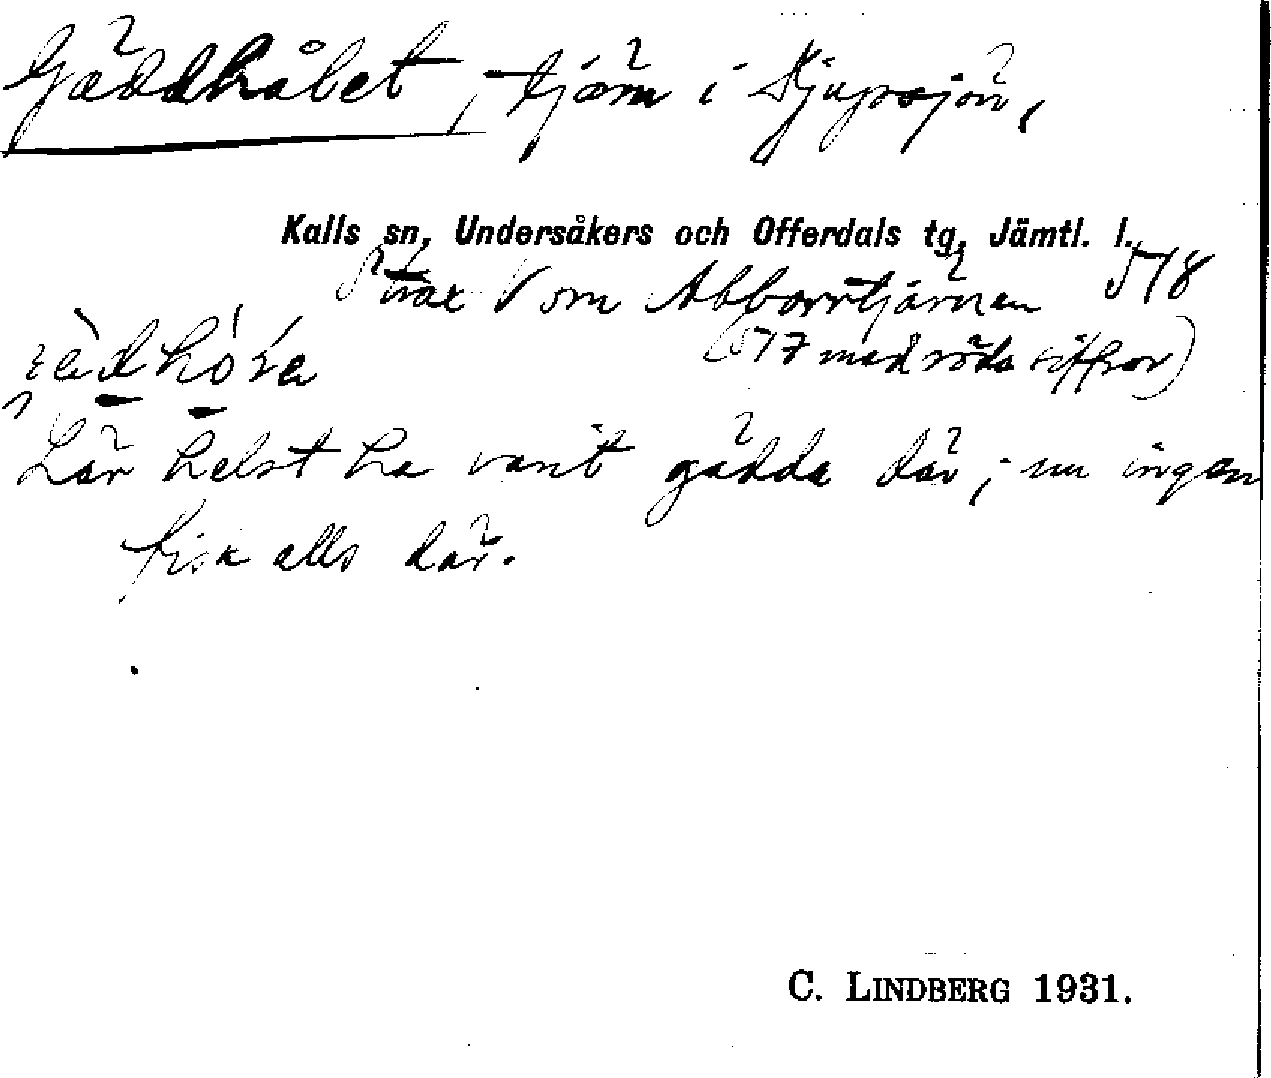 Gäddhålet, tjärn i Djupsjön,
Kalls sn, Undersåkers och Offerdals tg, Jämtl. l.
Strax V om Abborrtjärnen 578
(577 med röda siffror)
Lär helst ha varit gädda där, nu ingen
fisk alls där.
C. LINDBERG 1931.